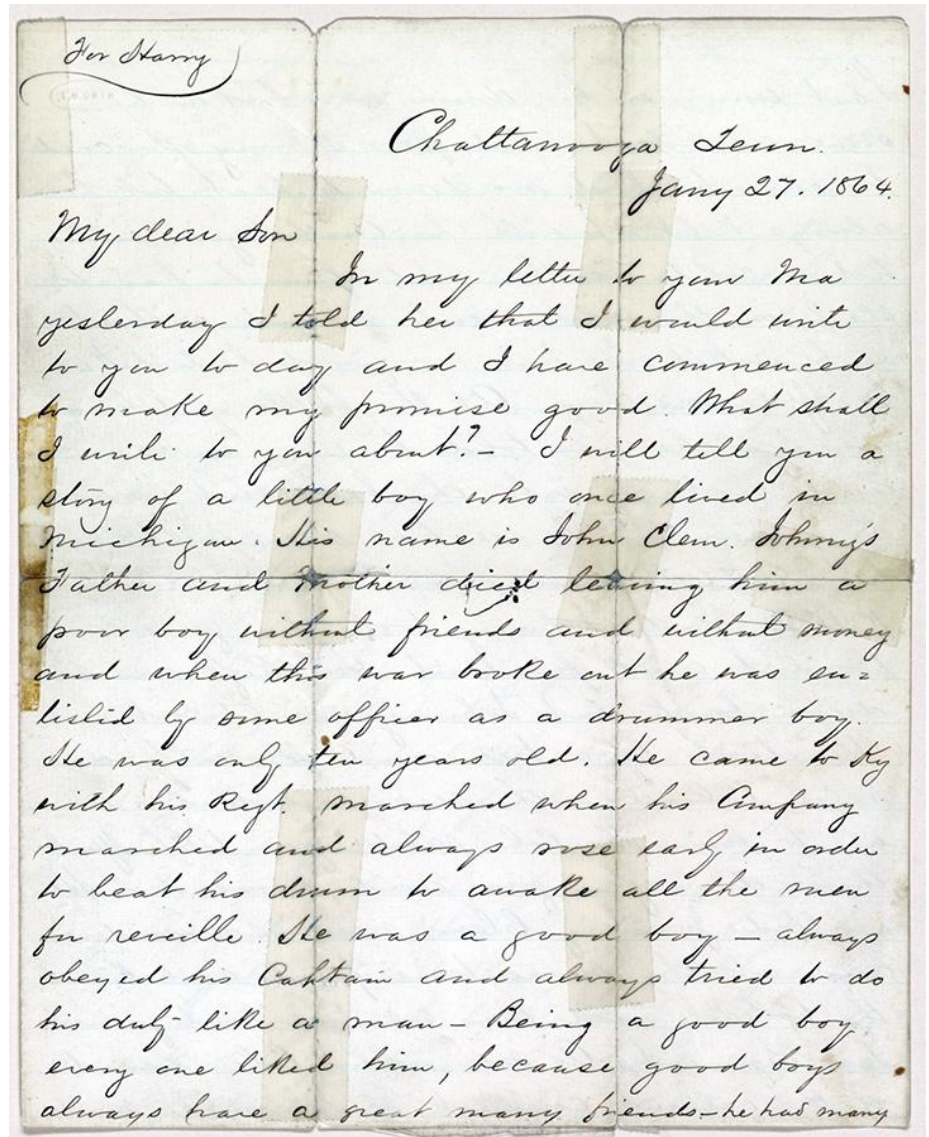 For Harry
Chattanooga Tenn.
Jany 27. 1864.
My dear Son
In my letter to your Ma
yesterday I told her that I would write
to you to day and I have commenced
to make my promise good. What shall
I write to you about? - I will tell you a
story of a little boy who once lived in
Michigan. His name is John Clem. Johnny's
Father and Mother died leaving him a
poor boy without friends and without money
and when this war broke out he was en=
listed by some officer as a drummer boy.
He was only ten years old. He came to Ky
with his Regt. marched when his Company
marched and always rose early in order
to beat his drum to awake all the men
for reveille. He was a good boy - always
obeyed his Captain and always tried to do
his duty like a man - Being a good boy
every one liked him, because good boys
always have a great many friends - he had many